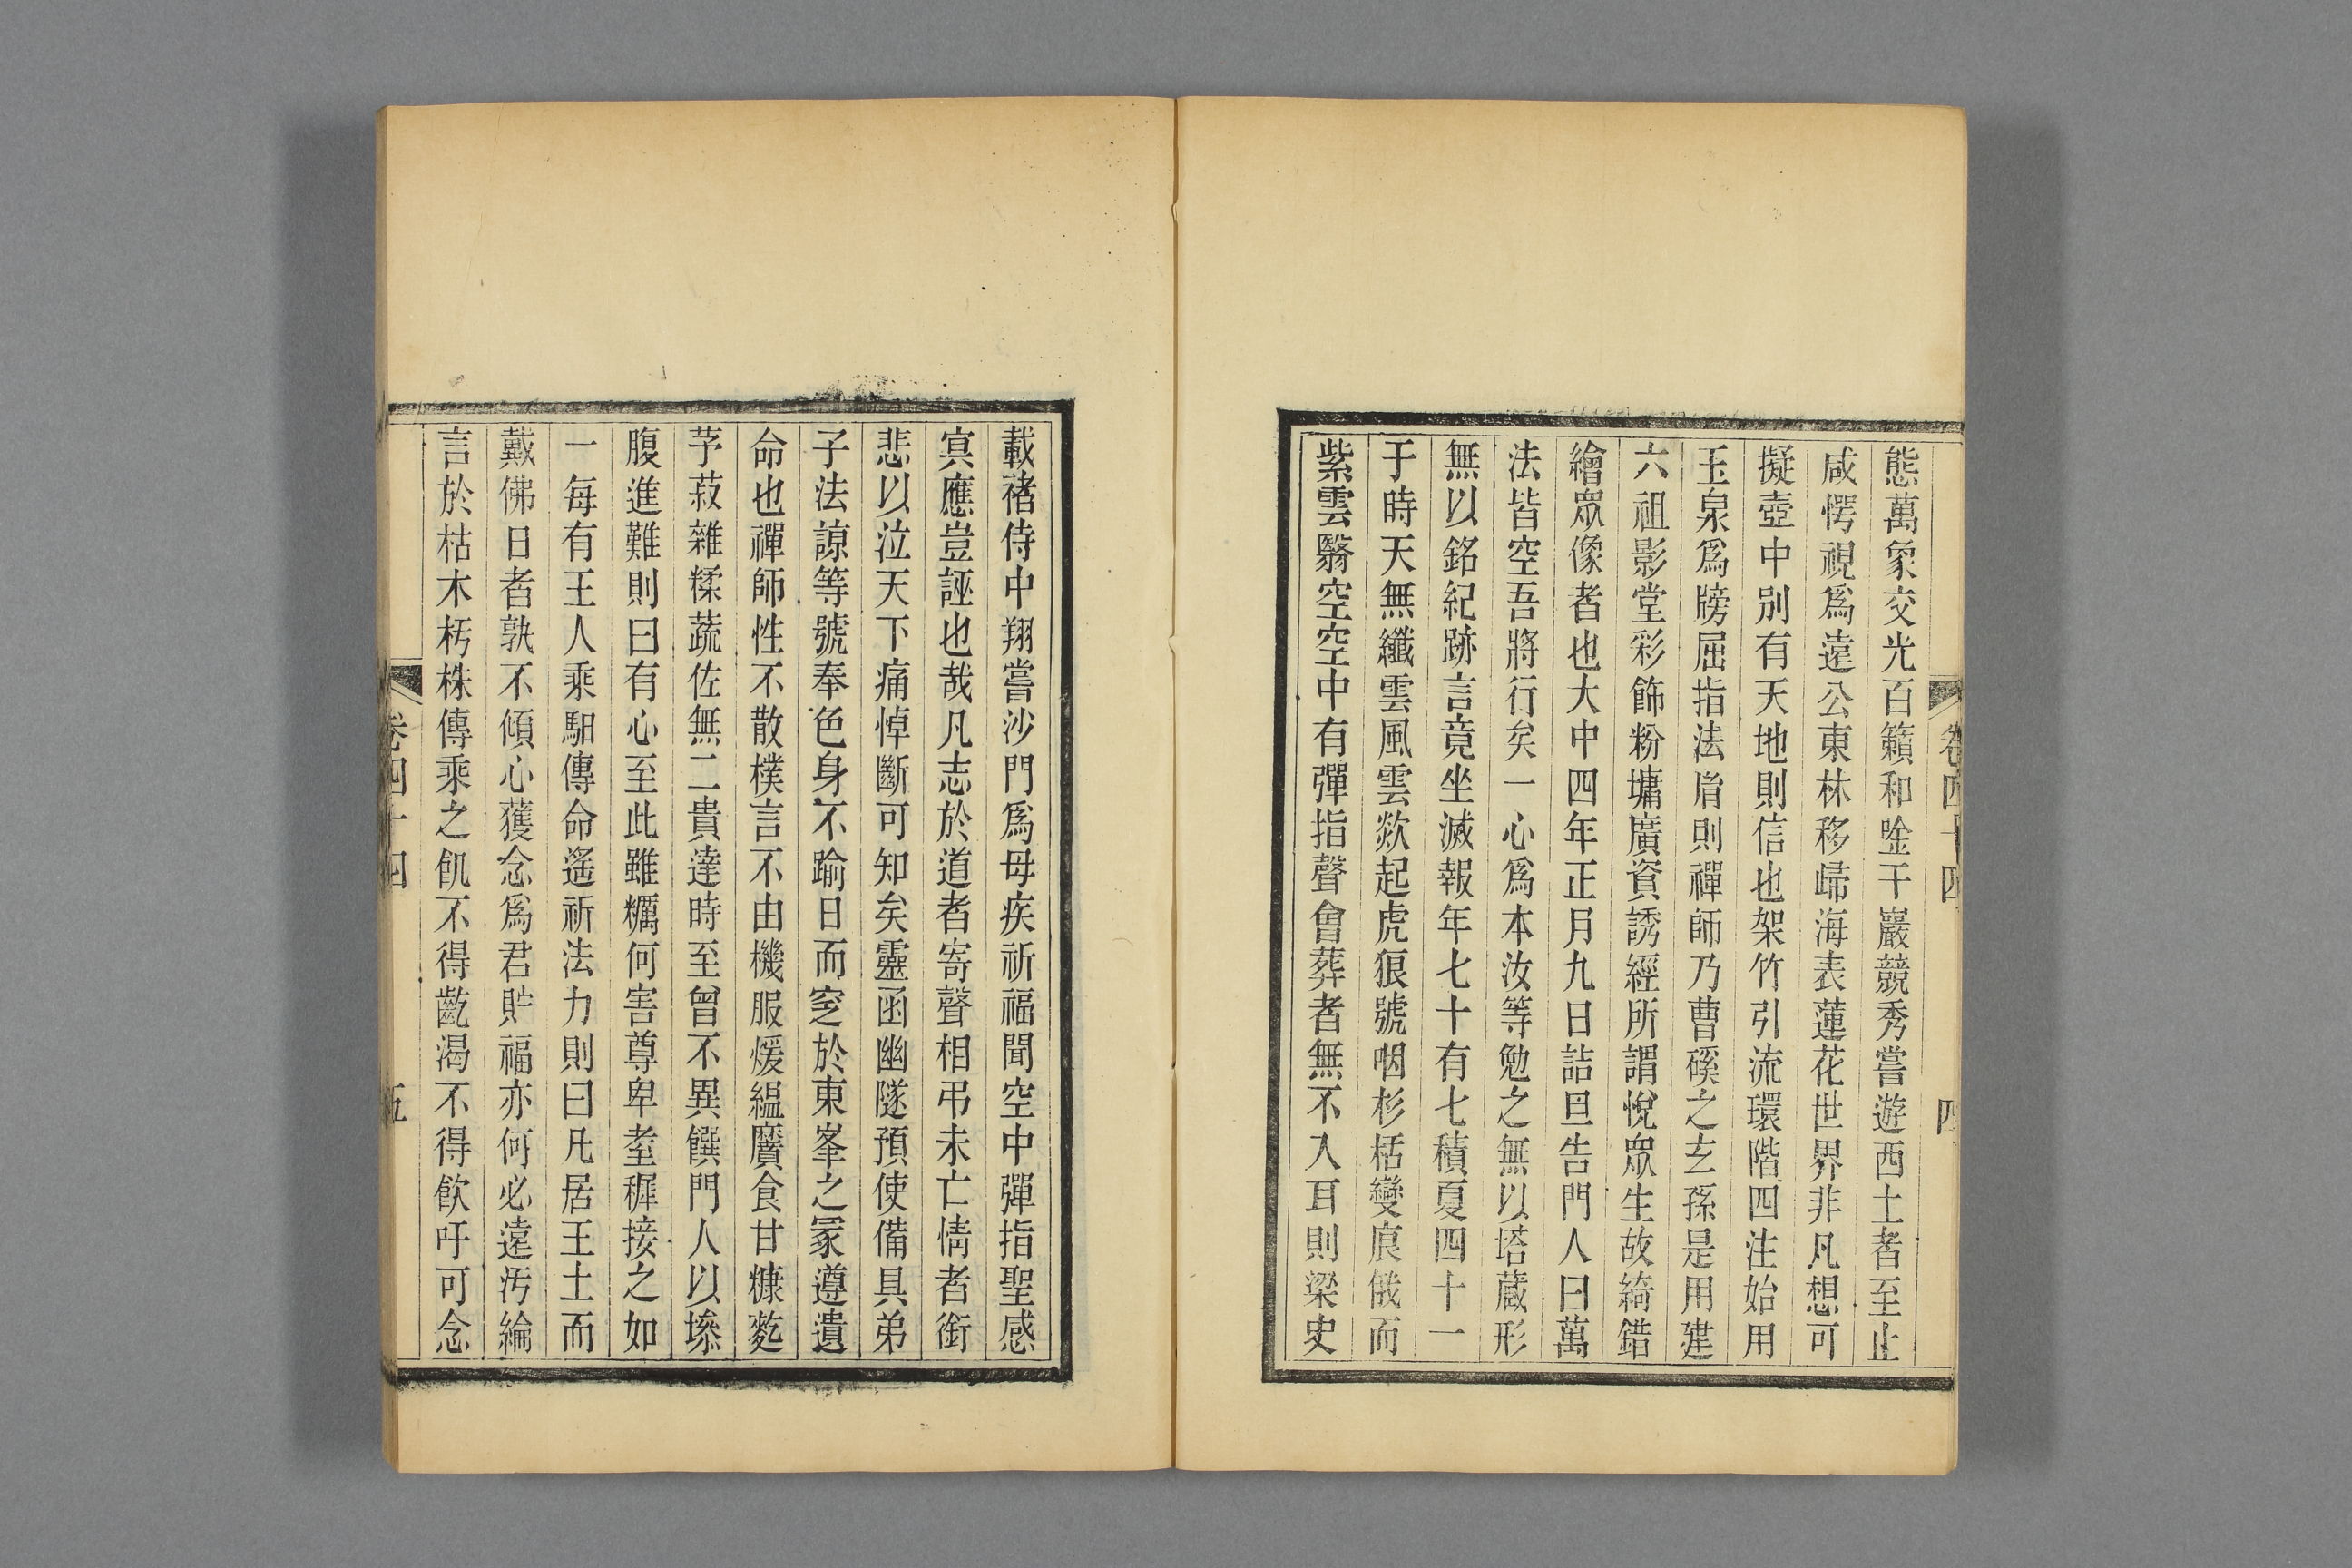 態萬象交光百籟和唫千巖競秀嘗遊西土者至止
咸愕視爲遠公東林移歸海表蓮花世界非凡想可
擬壺中別有天地則信也架竹引流環階四注始用
玉泉爲牓屈指法胤則禪師乃曹磎之玄孫是用建
六祖影堂彩飾粉墉廣資誘經所謂悅眾生故綺錯
繪眾像者也大中四年正月九日詰旦告門人曰萬
法皆空吾將行矣一心爲本汝等勉之無以塔藏形
無以銘紀跡言竟坐滅報年七十有七積夏四十一
于時天無纖雲風雲欻起虎狼號咽杉栝變痕俄而
紫雲翳空空中有彈指聲會葬者無不入耳則梁史
卷四十四
四
載褚侍中翔嘗沙門爲母疾祈福聞空中彈指聖感
寘應豈誣也哉凡志於道者寄聲相弔未亡情者銜
悲以泣天下痛悼斷可知矣靈函幽隧預使備具弟
子法諒等號奉色身不踰日而窆於東峯之冢遵遺
命也禪師性不散樸言不由機服煖縕黂食甘糠麧
芧菽雜糅蔬佐無二貴達時至曾不異饌門人以墋
腹進難則曰有心至此雖糲何害尊卑耋穉接之如
一每有王人乘馹傳命遙祈法力則曰凡居王土而
戴佛日者孰不傾心獲念爲君貯福亦何必遠汚綸
言於枯木朽株傳乘之飢不得齕渴不得飲吁可念
卷四十四
五